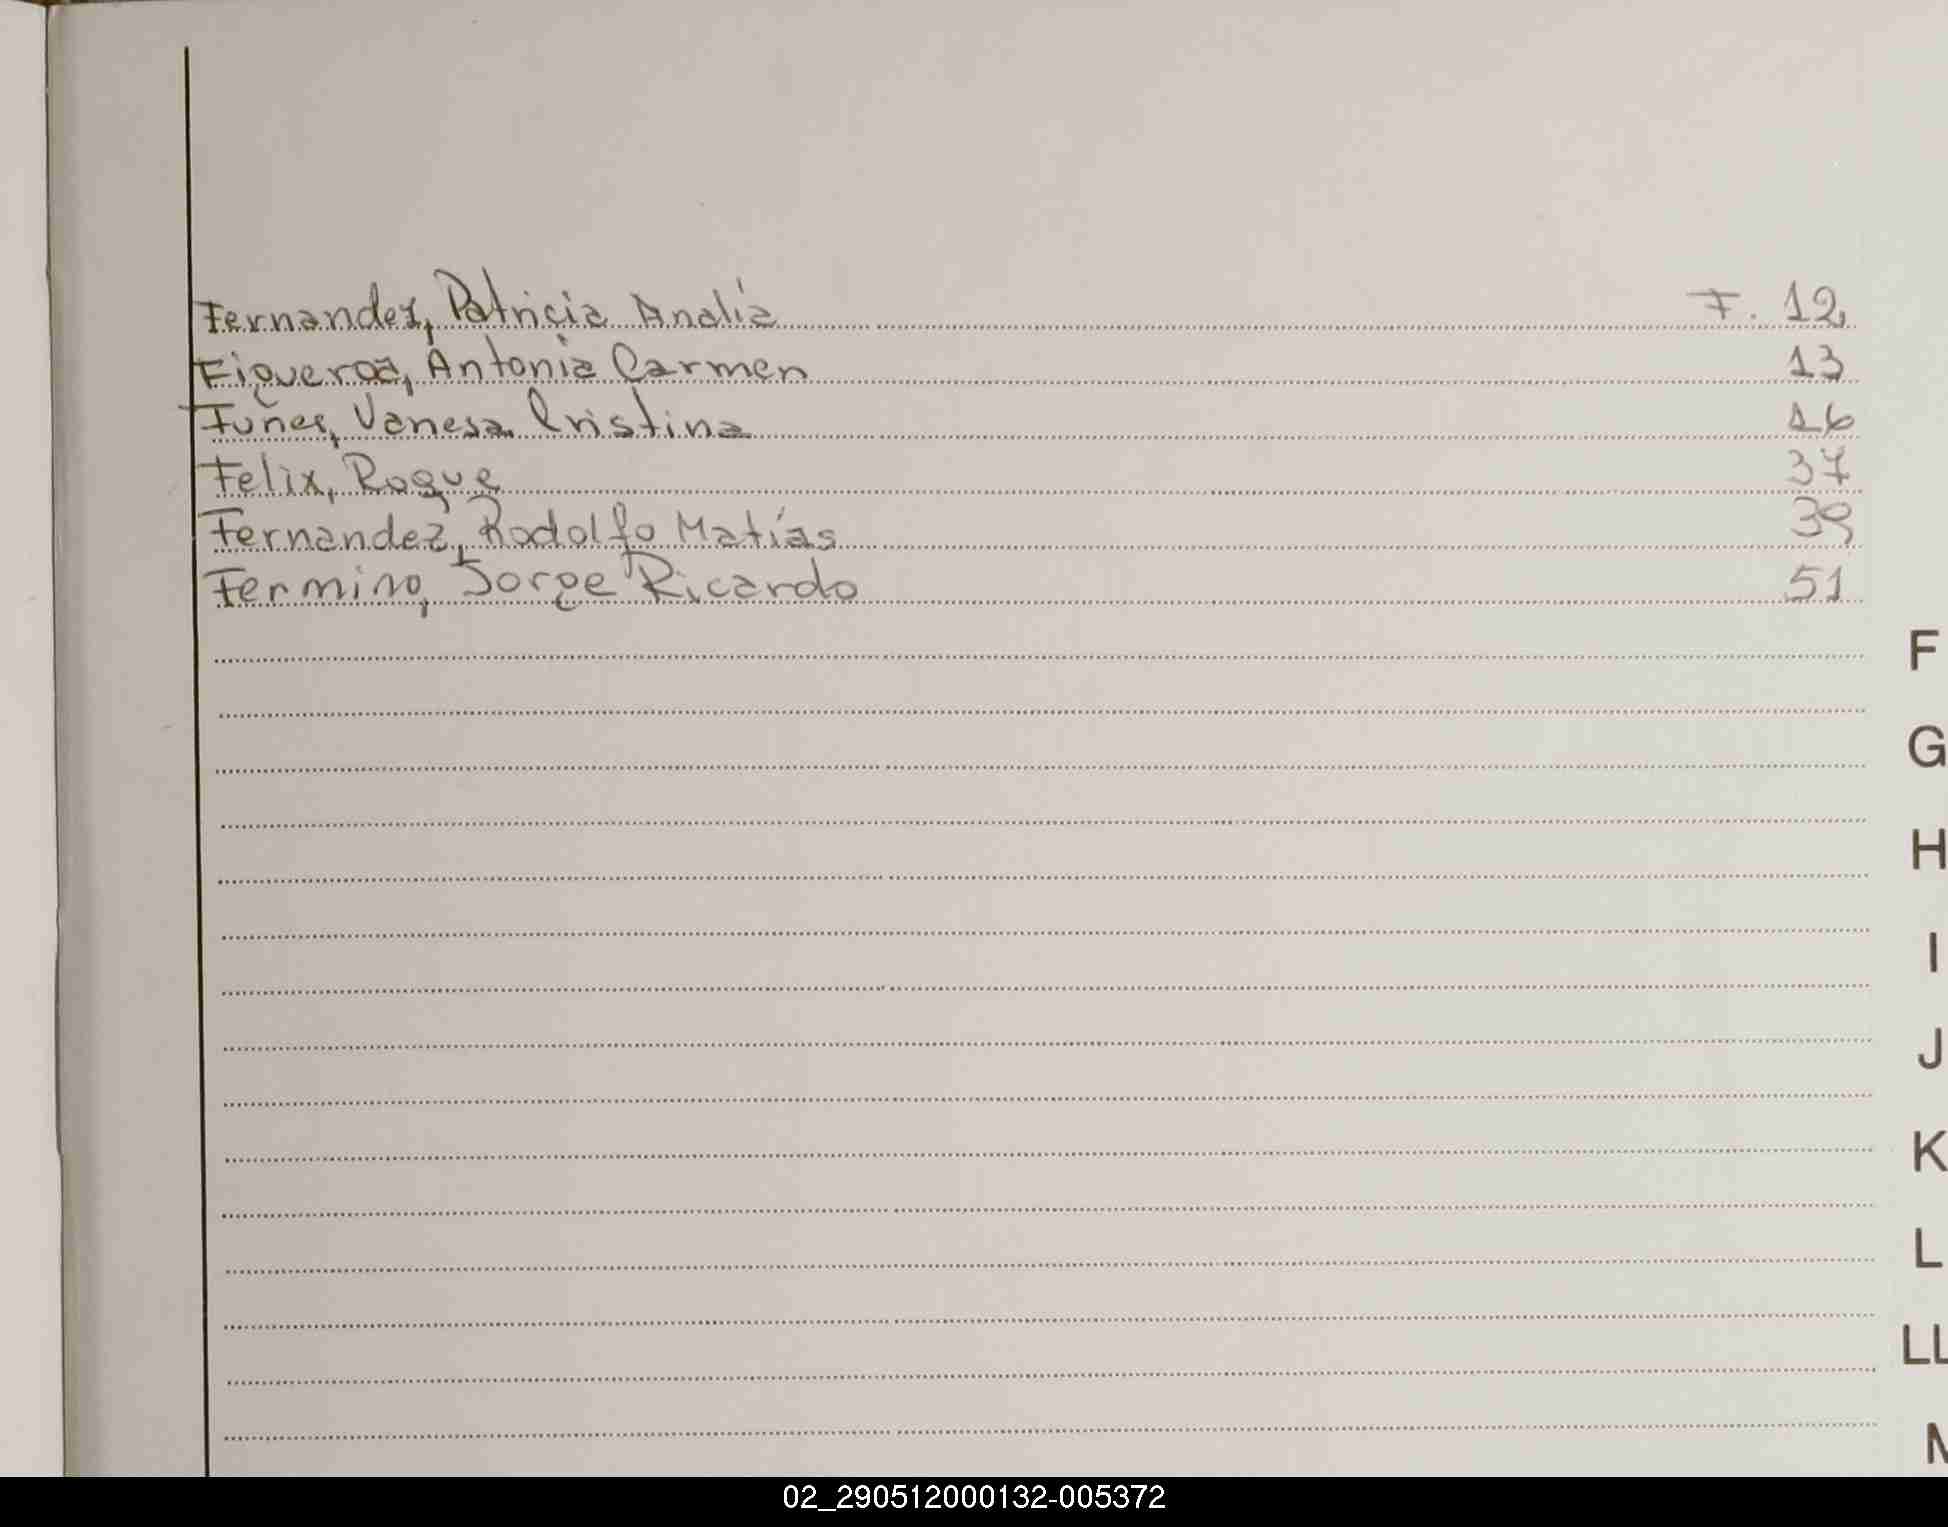 Fernandez, Patricia Analía F. 12
Figueroa, Antonia Carmen 13
Fuñes, Vanesa Cristina 16
Felix, Roque 37
Fernandez, Rodolfo Matías 39
Fermino, Jorge Ricardo 51
F
G
H
I
J
K
L
LL
M
02_290512000132-005372